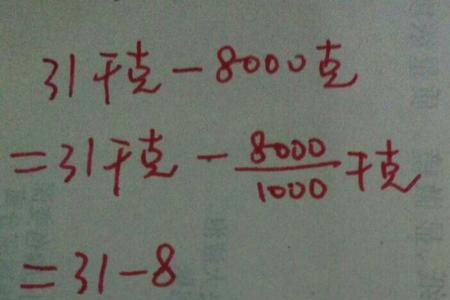 31千克-8000克
=31千克-8000/1000千克
=31-8